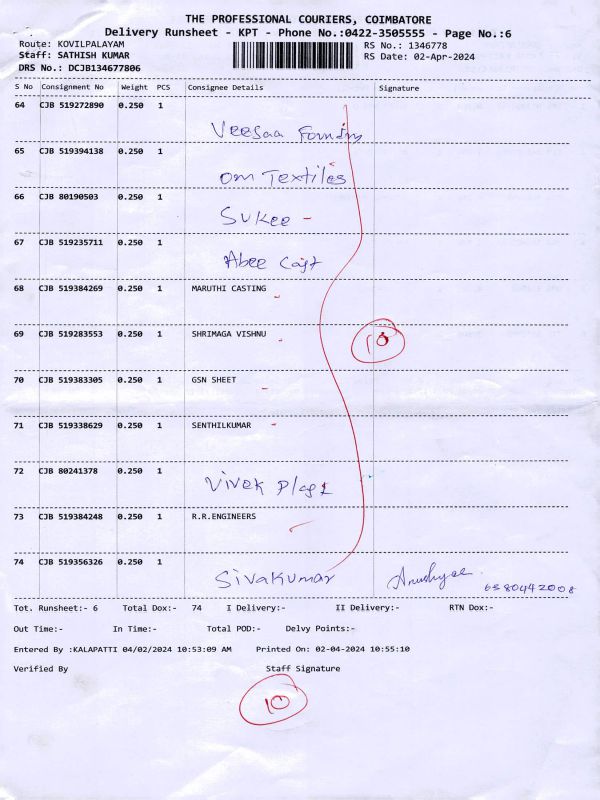 THE PROFESSIONAL COURIERS, COIMBATORE
Delivery Runsheet - KPT - Phone No.:0422-3505555 - Page No.:6
Route: KOVILPALAYAM RS No.: 1346778
Staff: SATHISH KUMAR RS Date: 02-Apr-2024
DRS No.: DCJB134677806
S No Consignment No Weight PCS Consignee Details Signature
64 CJB 519272890 0.250 1
Veesaa Foundry
65 CJB 519394138 0.250 1
Om Textiles
66 CJB 80190503 0.250 1
Sukee
67 CJB 519235711 0.250 1
Abee Cast
68 CJB 519384269 0.250 1 MARUTHI CASTING
69 CJB 519283553 0.250 1 SHRIMAGA VISHNU
10
70 CJB 519383305 0.250 1 GSN SHEET
71 CJB 519338629 0.250 1 SENTHILKUMAR
72 CJB 80241378 0.250 1
Vivek Plast
73 CJB 519384248 0.250 1 R.R.ENGINEERS
74 CJB 519356326 0.250 1
Sivakumar 6380442008
Tot. Runsheet:- 6 Total Dox:- 74 I Delivery:- II Delivery:- RTN Dox:-
Out Time:- In Time:- Total POD:- Delvy Points:-
Entered By :KALAPATTI 04/02/2024 10:53:09 AM Printed On: 02-04-2024 10:55:10
Verified By Staff Signature
10